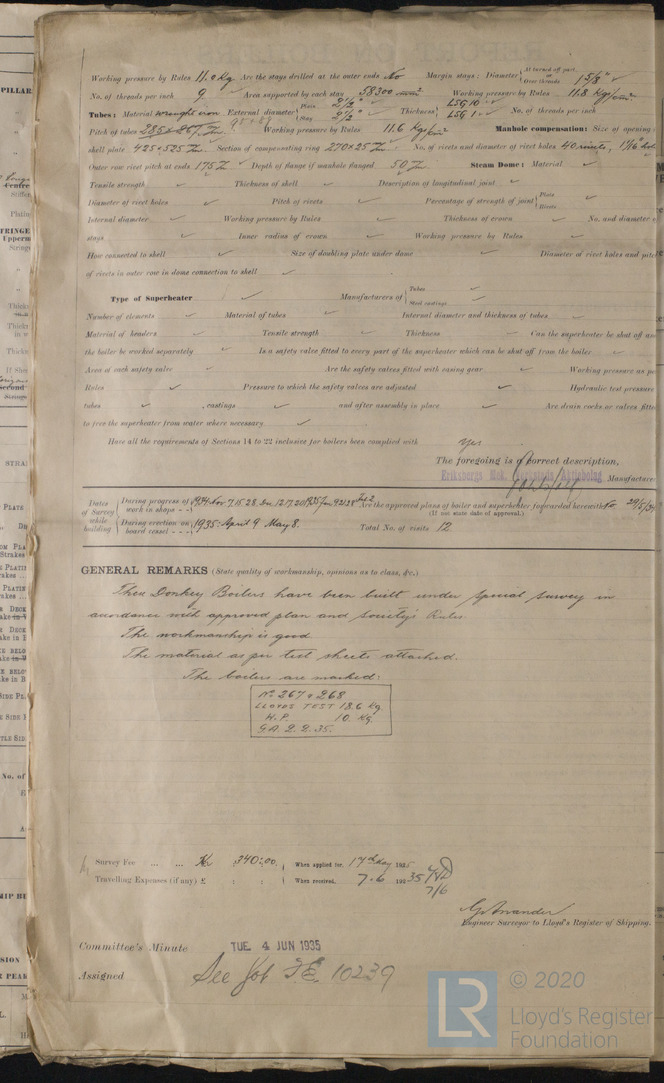 Working pressure by Rules 11.0 Kg Are the stays drilled at the outer ends No Margin stays: Diameter { At turned off part, or Over threads 1 5/8" ✓
No. of threads per inch 9 ✓ Area supported by each stay 58300 mm² Working pressure by Rules 11.8 Kgs/cm²
Tubes: Material wrought iron External diameter { Plain 2½" ✓ Stay 2½" ✓ Thickness { LSG 10 ✓ LSG 1 ✓ No. of threads per inch
Pitch of tubes Working pressure by Rules 11.6 Kg/cm² Manhole compensation: Size of opening
shell plate 425×525 Section of compensating ring 270×25 No. of rivets and diameter of rivet holes 40 rivets, 1 1/16 hol
Outer row rivet pitch at ends 175 Depth of flange if manhole flanged 50 Steam Dome: Material ✓
Tensile strength ✓ Thickness of shell ✓ Description of longitudinal joint ✓
Diameter of rivet holes ✓ Pitch of rivets ✓ Percentage of strength of joint { Plate Rivets ✓
Internal diameter ✓ Working pressure by Rules ✓ Thickness of crown ✓ No. and diameter o
stays ✓ Inner radius of crown ✓ Working pressure by Rules ✓
How connected to shell ✓ Size of doubling plate under dome ✓ Diameter of rivet holes and pitc
of rivets in outer row in dome connection to shell ✓
Type of Superheater ✓ Manufacturers of { Tubes ✓ Steel castings ✓
Number of elements ✓ Material of tubes ✓ Internal diameter and thickness of tubes ✓
Material of headers ✓ Tensile strength ✓ Thickness ✓ Can the superheater be shut off an
the boiler be worked separately ✓ Is a safety valve fitted to every part of the superheater which can be shut off from the boiler ✓
Area of each safety valve ✓ Are the safety valves fitted with easing gear ✓ Working pressure as pe
Rules ✓ Pressure to which the safety valves are adjusted ✓ Hydraulic test pressure
tubes ✓ , castings ✓ and after assembly in place ✓ Are drain cocks or valves fitte
to free the superheater from water where necessary ✓
Have all the requirements of Sections 14 to 22 inclusive for boilers been complied with Yes
The foregoing is a correct description,
Eriksbergs Mek. Verkstads Aktiebolag Manufacturer
Dates of Survey while building { During progress of work in shops - - 1934: Nov 7. 15. 28. Dec 12. 17. 20. 1935 Jan 9. 21. 28 Feb 2 Are the approved plans of boiler and superheater forwarded herewith 29/5/34
(If not state date of approval.)
During erection on board vessel - - - 1935: April 9 May 8. Total No. of visits 12
GENERAL REMARKS (State quality of workmanship, opinions as to class, &c.)
These Donkey Boilers have been built under special survey in
accordance with approved plan and Society's Rules.
The workmanship is good
The material as per test sheets attached.
The boilers are marked:
No 267 & 268
LLOYDS TEST 18.6 Kg
W.P. 10 Kg
GA 2.2.35.
Survey Fee ... ... Kr 340:00. When applied for, 17th May 1935
Travelling Expenses (if any) £ : : When received, 7.6 1935
7/6
Engineer Surveyor to Lloyd's Register of Shipping.
Committee's Minute TUE. 4 JUN 1935
Assigned See Got F.E. 10239
LR © 2020
Lloyd's Register
Foundation